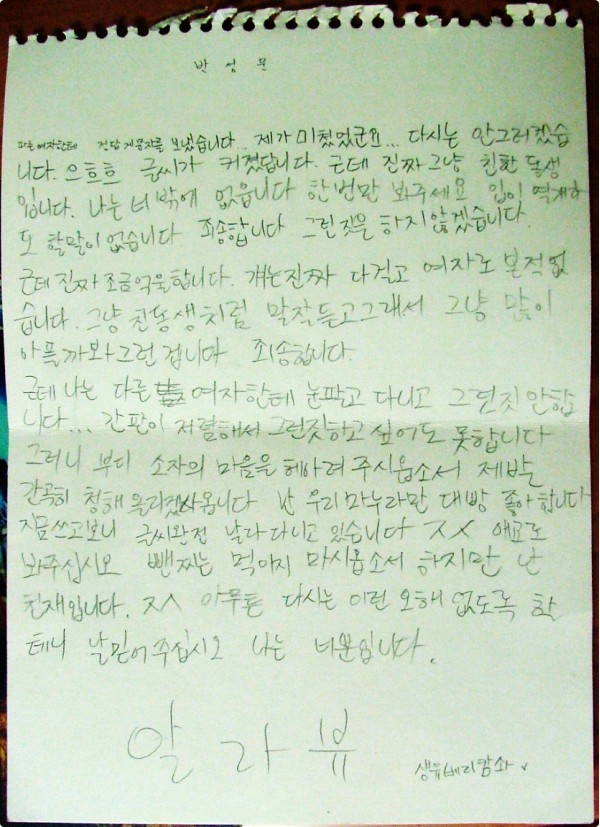 반 성 문
다른 여자한테 전달 게용자를 보냈습니다... 제가 미쳤었군요... 다시는 안그러겠습
니다. 으흐흐 글씨가 커졌답니다. 근데 진짜 그냥 친한 동생
입니다. 나는 너 밖에 없읍니다 한번만 봐주세요 입이 역개라
도 할말이 없습니다 죄송합니다 그런짓을 하지 않겠습니다.
근데 진짜 조금억울합니다. 걔는진짜 다걸고 여자로 본적없
습니다. 그냥 친동생처럼 말잘듣고그래서 그냥 많이
아플까봐그런겁니다 죄송합니다.
근데 나는 다른 여자한테 눈팔고 다니고 그런짓 안합
니다... 간판이 저렴해서 그런짓하고 싶어도 못합니다
그러니 부디 소자의 마음을 헤아려 주시옵소서 제발
간곡히 청해 올리겠사옵니다 난 우리 마누라만 대빵 좋아합니다
지금쓰고보니 글씨완전 날라 다니고 있습니다 ㅈㅅ 애교로
봐주십시오 삔찌는 먹이지 마시옵소서 하지만 난
천재입니다. ㅈㅅ 아무튼 다시는 이런 오해 없도록 할
테니 날믿어주십시오 나는 너뿐입니다.
알 라 뷰
생유베리캄솨